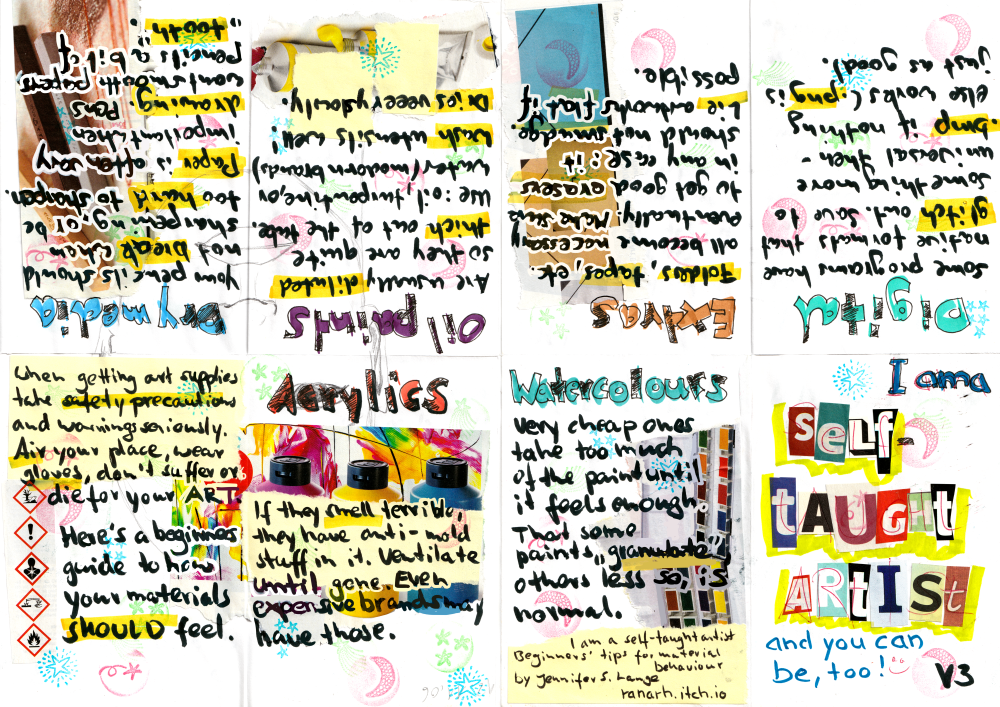 Dry media
Your pencils should
not break when
sharpening, or be
too hard to sharpen.
Paper is often very
important when
drawing. Pens
want smooth papers
pencils a bit of
"tooth"
Oil paints
Are usually diluted
so they are quite
thick out of the tube.
Use: oil, turpentine, or
water (modern brands)
Wash utensils well!
Dries veeery slowly.
Extras
Folders, tapes, etc.
all become necessary
eventually. Make sure
to get good erasers
in any case: it
should not smudge.
Lie artworks flat if
possible.
Digital
Some programs have
native formats that
glitch out. Save to
something more
universal then -
.bmp if nothing
else works (.png is
just as good).
When getting art supplies
take safety precautions
and warnings seriously.
Air your place, wear
gloves, don't suffer or
die for your ART
Here's a beginners
guide to how
your materials
SHOULD feel.
Acrylics
If they smell terrible,
they have anti-mold
stuff in it. Ventilate
until gone. Even
expensive brands may
have those.
Watercolours
Very cheap ones
take too much
of the paint until
it feels enough.
That some
paints "granulate"
others less so, is
normal.
I am a self-taught artist
Beginners' tips for material
behaviour
by Jennifer S. Lange
ranarh.itch.io
I am a
SELF-
tAUGht
ARtISt
and you can
be, too!
V3